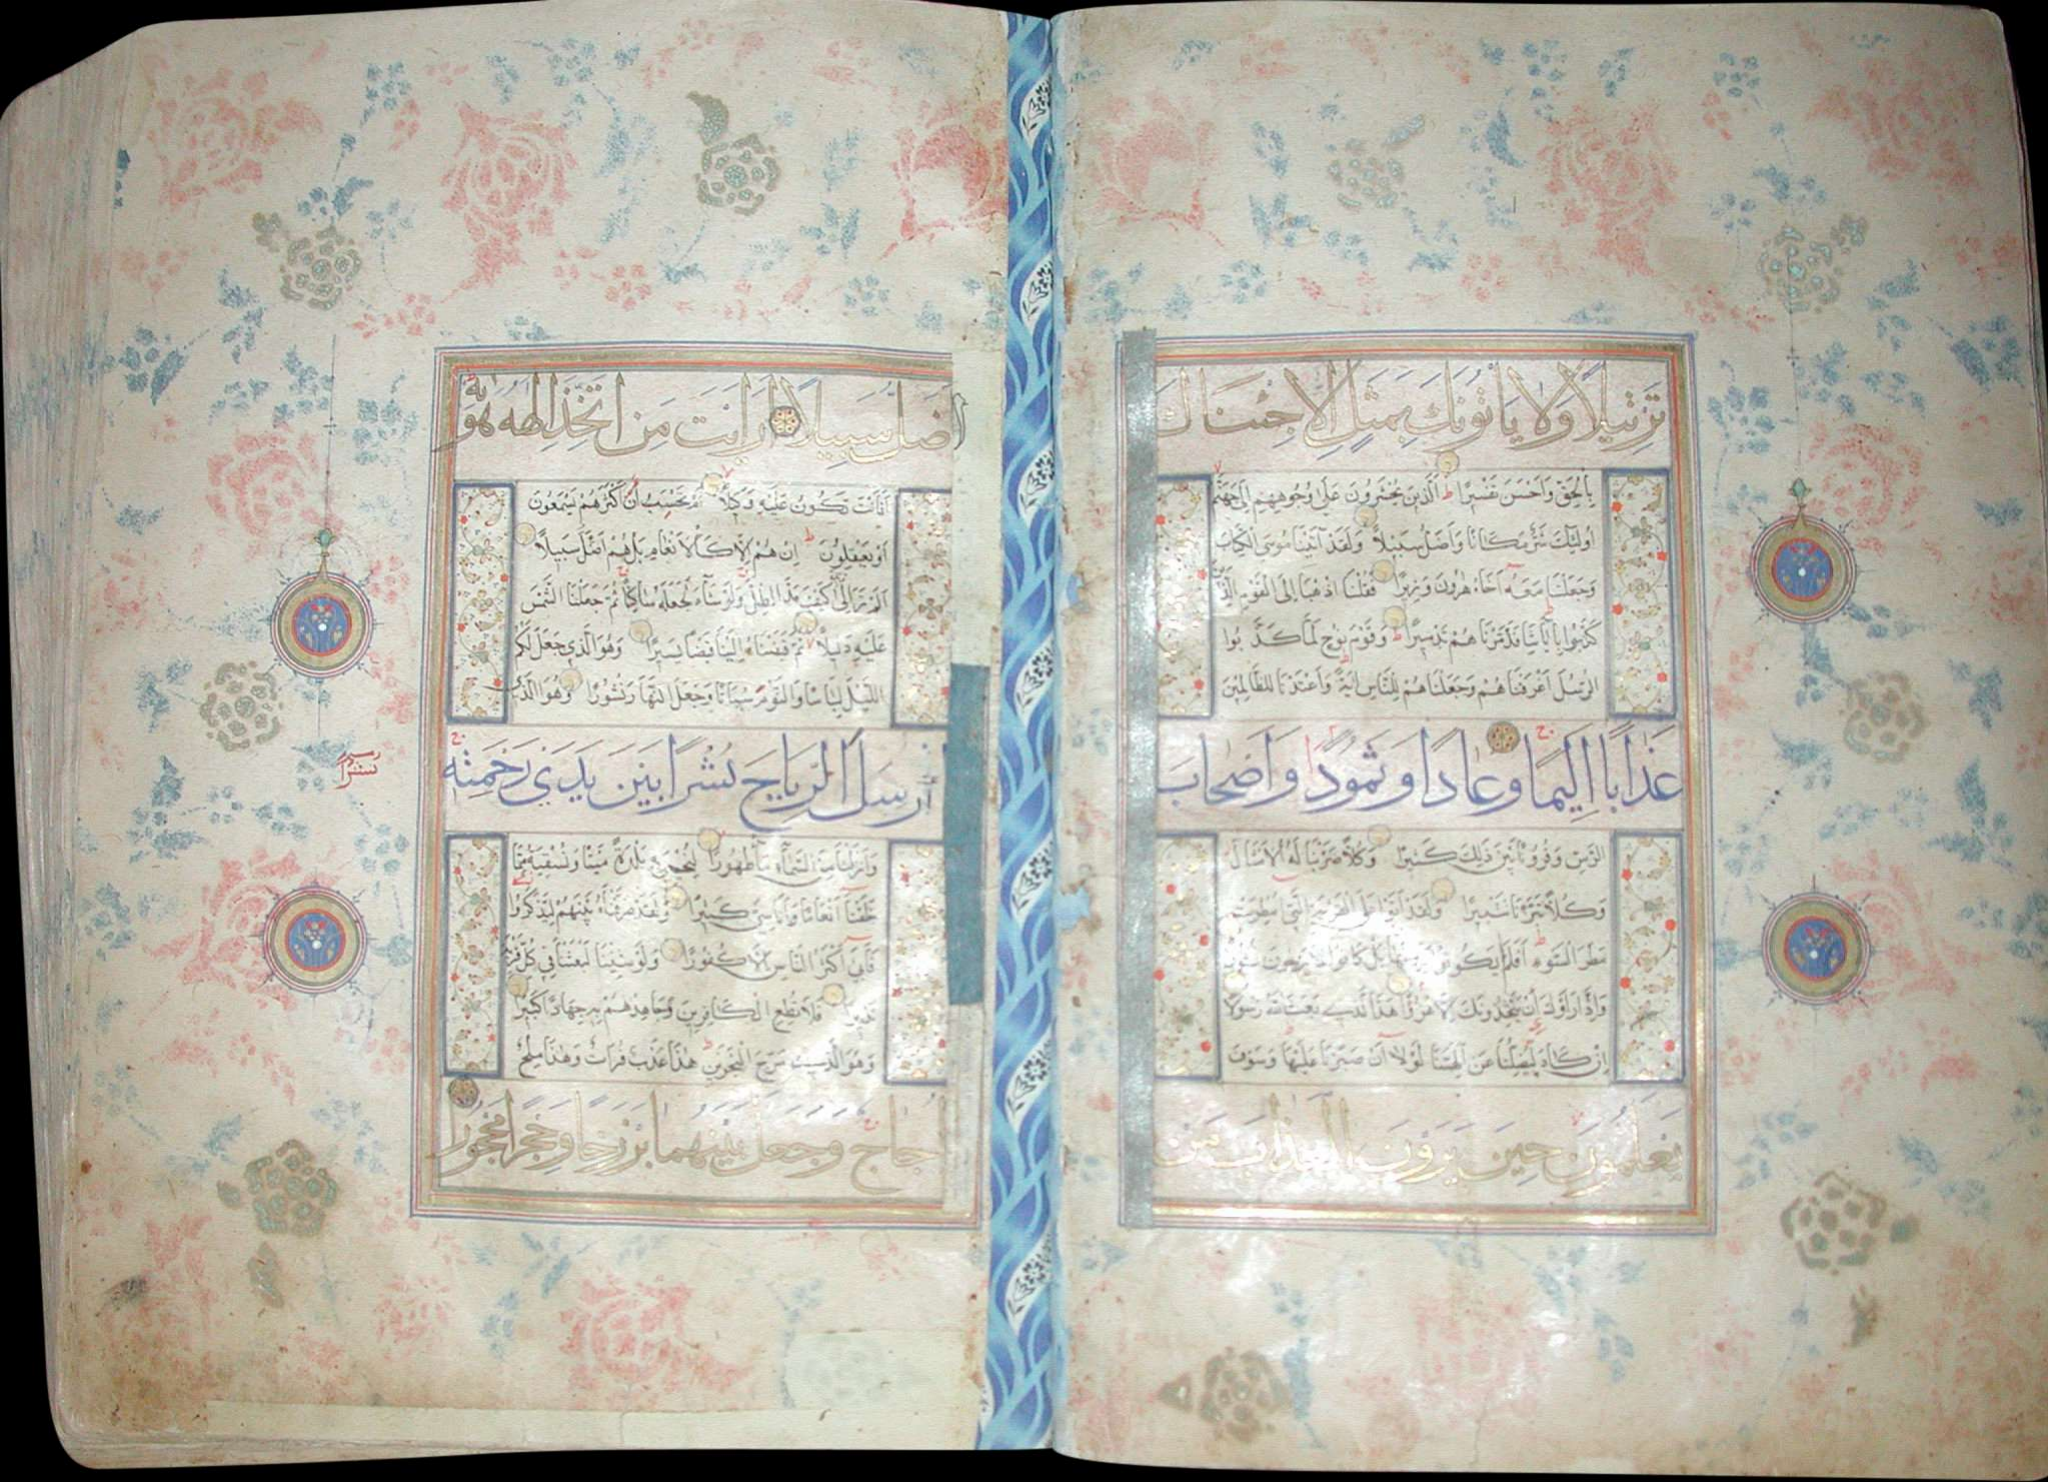 تَرْتِيلًا وَلَا يَأْتُونَكَ بِمَثَلٍ إِلَّا جِئْنَاكَ
بِالْحَقِّ وَاَحْسَنَ تَفْسِيرًا الَّذِينَ يُحْشَرُونَ عَلَى وُجُوهِهِمْ اِلَى جَهَنَّمَ
اُولَئِكَ شَرٌّ مَكَانًا وَاَضَلُّ سَبِيلًا وَلَقَدْ آتَيْنَا مُوسَى الْكِتَابَ
وَجَعَلْنَا مَعَهُ اَخَاهُ هٰرُونَ وَزِيرًا فَقُلْنَا اذْهَبَا اِلَى الْقَوْمِ الَّذِينَ
كَذَّبُوا بِآيَاتِنَا فَدَمَّرْنَاهُمْ تَدْمِيرًا وَقَوْمَ نُوحٍ لَمَّا كَذَّبُوا
الرُّسُلَ اَغْرَقْنَاهُمْ وَجَعَلْنَاهُمْ لِلنَّاسِ آيَةً وَاَعْتَدْنَا لِلظَّالِمِينَ
عَذَابًا اَلِيمًا وَعَادًا وَثَمُودًا وَاَصْحَابَ
الرَّسِّ وَقُرُونًا بَيْنَ ذَلِكَ كَثِيرًا وَكُلًّا ضَرَبْنَا لَهُ الْاَمْثَالَ
وَكُلًّا تَبَّرْنَا تَتْبِيرًا وَلَقَدْ اَتَوْا عَلَى الْقَرْيَةِ الَّتِي اُمْطِرَتْ
مَطَرَ السَّوْءِ اَفَلَمْ يَكُونُوا يَرَوْنَهَا بَلْ كَانُوا لَا يَرْجُونَ نُشُورًا
وَاِذَا رَاَوْكَ اِنْ يَتَّخِذُونَكَ اِلَّا هُزُوًا اَهَذَا الَّذِي بَعَثَ اللَّهُ رَسُولًا
اِنْ كَادَ لَيُضِلُّنَا عَنْ آلِهَتِنَا لَوْلَا اَنْ صَبَرْنَا عَلَيْهَا وَسَوْفَ
يَعْلَمُونَ حِينَ يَرَوْنَ الْعَذَابَ مَنْ
اَضَلُّ سَبِيلًا اَرَاَيْتَ مَنِ اتَّخَذَ اِلٰهَهُ هَوٰيهُ
اَفَاَنْتَ تَكُونُ عَلَيْهِ وَكِيلًا اَمْ تَحْسَبُ اَنَّ اَكْثَرَهُمْ يَسْمَعُونَ
اَوْ يَعْقِلُونَ اِنْ هُمْ اِلَّا كَالْاَنْعَامِ بَلْ هُمْ اَضَلُّ سَبِيلًا
اَلَمْ تَرَ اِلَى رَبِّكَ كَيْفَ مَدَّ الظِّلَّ وَلَوْ شَآءَ لَجَعَلَهُ سَاكِنًا ثُمَّ جَعَلْنَا الشَّمْسَ
عَلَيْهِ دَلِيلًا ثُمَّ قَبَضْنَاهُ اِلَيْنَا قَبْضًا يَسِيرًا وَهُوَ الَّذِي جَعَلَ لَكُمُ
اللَّيْلَ لِبَاسًا وَالنَّوْمَ سُبَاتًا وَجَعَلَ النَّهَارَ نُشُورًا وَهُوَ الَّذِي
اَرْسَلَ الرِّيَاحَ نُشُرًا بَيْنَ يَدَيْ رَحْمَتِهِ
نشرا
وَاَنْزَلْنَا مِنَ السَّمَآءِ مَآءً طَهُورًا لِنُحْيِيَ بِهِ بَلْدَةً مَيْتًا وَنُسْقِيَهُ مِمَّا
خَلَقْنَا اَنْعَامًا وَاَنَاسِيَّ كَثِيرًا وَلَقَدْ صَرَّفْنَاهُ بَيْنَهُمْ لِيَذَّكَّرُوا
فَاَبَى اَكْثَرُ النَّاسِ اِلَّا كُفُورًا وَلَوْ شِئْنَا لَبَعَثْنَا فِي كُلِّ قَرْيَةٍ
نَذِيرًا فَلَا تُطِعِ الْكَافِرِينَ وَجَاهِدْهُمْ بِهِ جِهَادًا كَبِيرًا
وَهُوَ الَّذِي مَرَجَ الْبَحْرَيْنِ هٰذَا عَذْبٌ فُرَاتٌ وَهٰذَا مِلْحٌ
اُجَاجٌ وَجَعَلَ بَيْنَهُمَا بَرْزَخًا وَحِجْرًا مَحْجُورًا